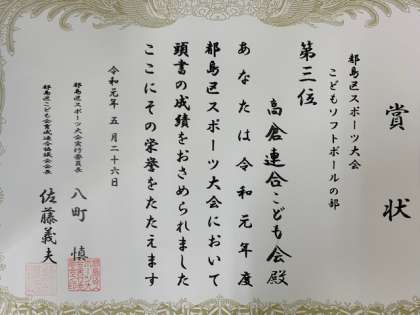 賞状
都島区スポーツ大会
こどもソフトボールの部
第三位
高倉連合こども会殿
あなたは令和元年度
都島区スポーツ大会において
頭書の成績をおさめられました
ここにその栄誉をたたえます
令和元年 五月二十六日
都島区スポーツ大会実行委員長
八町 慎
都島区こども会育成連合協議会会長
佐藤義夫